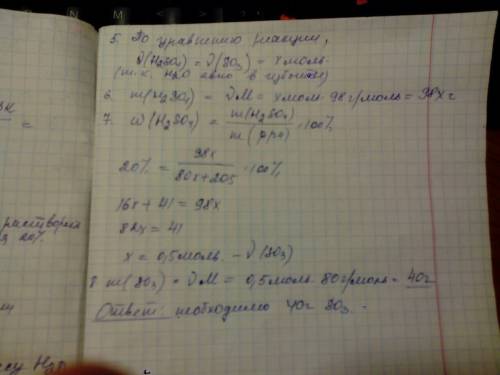 5. По уравнению реакции,
ν(H₂SO₄) = ν(SO₃) = x моль.
(т.к. H₂O явно в избытке)
6. m(H₂SO₄) = νM = x моль · 98 г/моль = 98x г
7. ω(H₂SO₄) = m(H₂SO₄) / m(р-ра) · 100%
20% = 98x / 80x+205 · 100%
16x + 41 = 98x
82x = 41
x = 0,5 моль - ν(SO₃)
8 m(SO₃) = νM = 0,5 моль · 80 г/моль = 40 г
Ответ: необходимо 40 г SO₃.
=
растворили
20%
H₂O